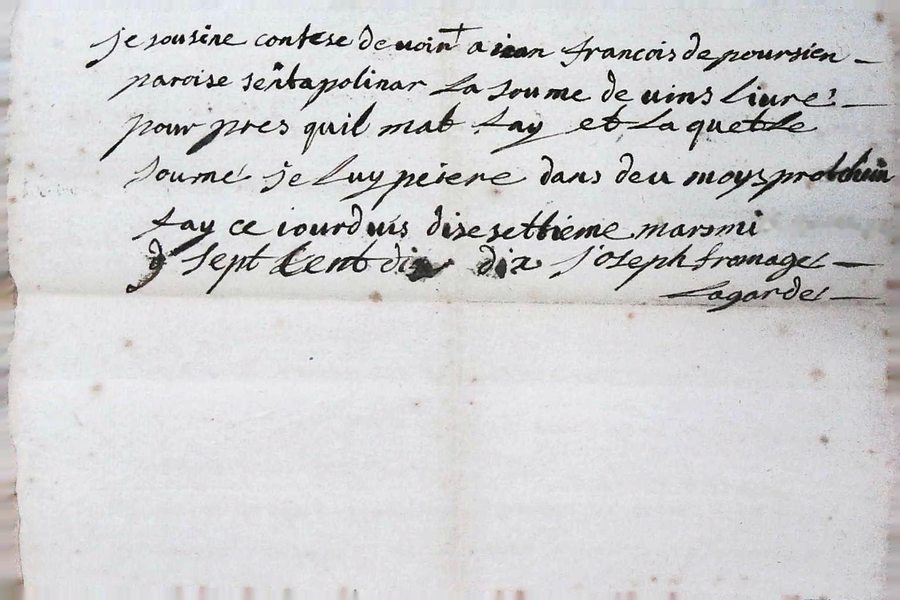 je sousine confese devoir a jean francois de poursien
paroise sentapolinar la soume de vins livre
pour pres quil mat fay et la quelle
soume je luy peiere dans deu moys protchein
fay ce jourduis disesettieme mars mi
sept cent dix joseph fromage
Lagarde